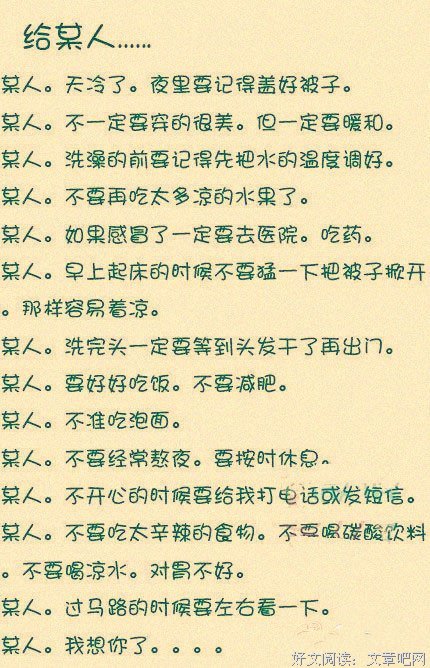 给某人……
某人。天冷了。夜里要记得盖好被子。
某人。不一定要穿的很美。但一定要暖和。
某人。洗澡的前要记得先把水的温度调好。
某人。不要再吃太多凉的水果了。
某人。如果感冒了一定要去医院。吃药。
某人。早上起床的时候不要猛一下把被子掀开
。那样容易着凉。
某人。洗完头一定要等到头发干了再出门。
某人。要好好吃饭。不要减肥。
某人。不准吃泡面。
某人。不要经常熬夜。要按时休息。
某人。不开心的时候要给我打电话或发短信。
某人。不要吃太辛辣的食物。不要喝碳酸饮料
。不要喝凉水。对胃不好。
某人。过马路的时候要左右看一下。
某人。我想你了。。。。
好文阅读：文章吧网